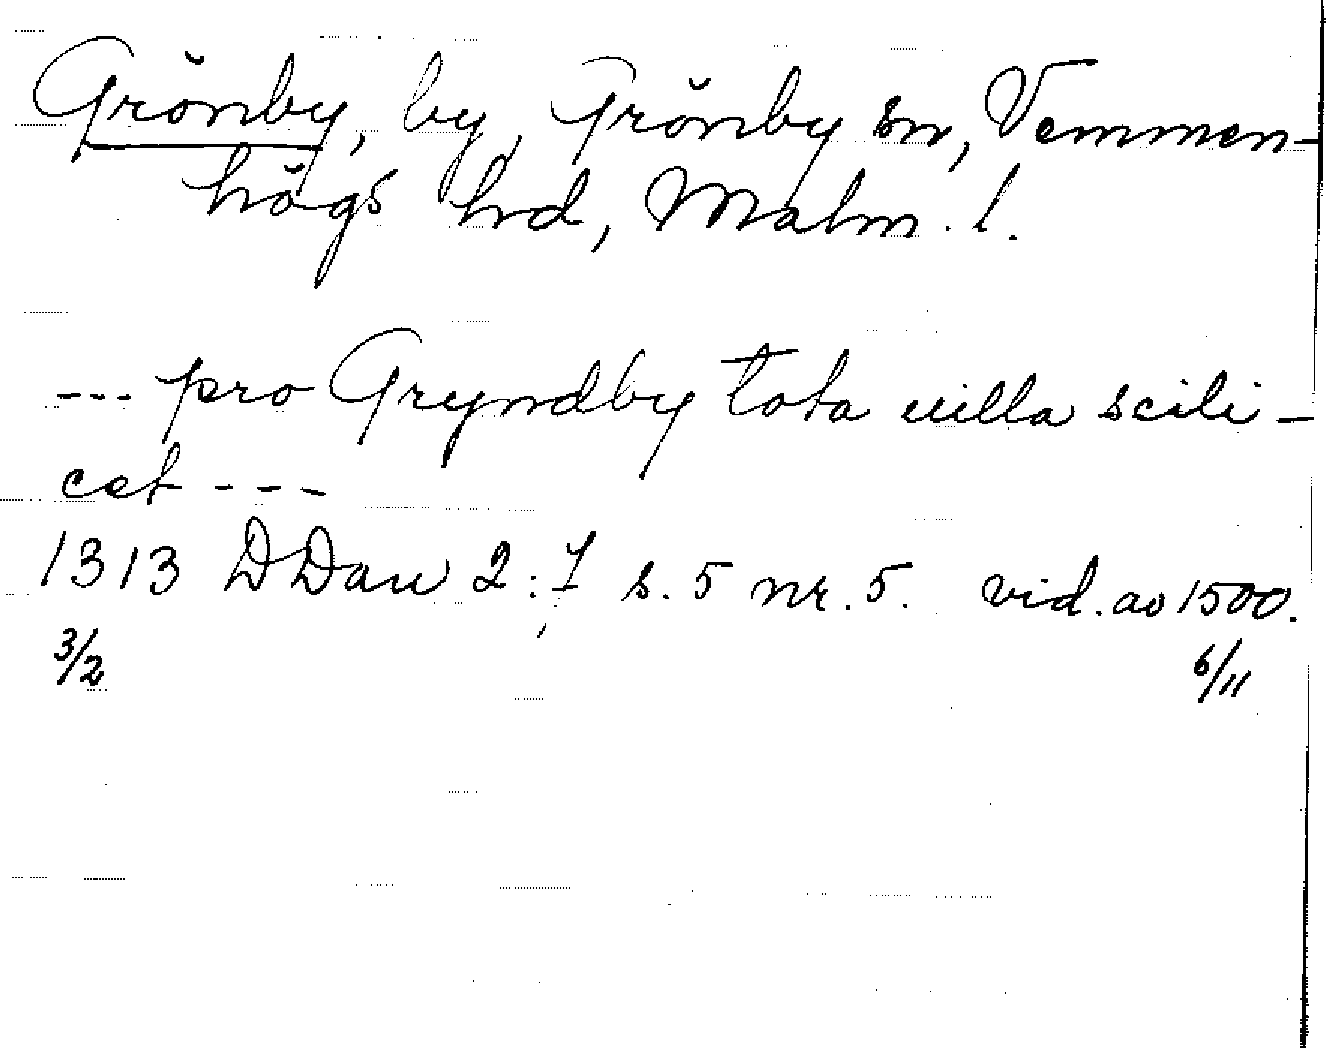 Grönby, by, Grönby sn, Vemmen-
högs hrd, Malm. l.
--- pro Gryndby tota uilla scili-
cet ---
1313 DDan 2:7 s. 5 nr. 5. vid. av 1500.
3/2 6/11